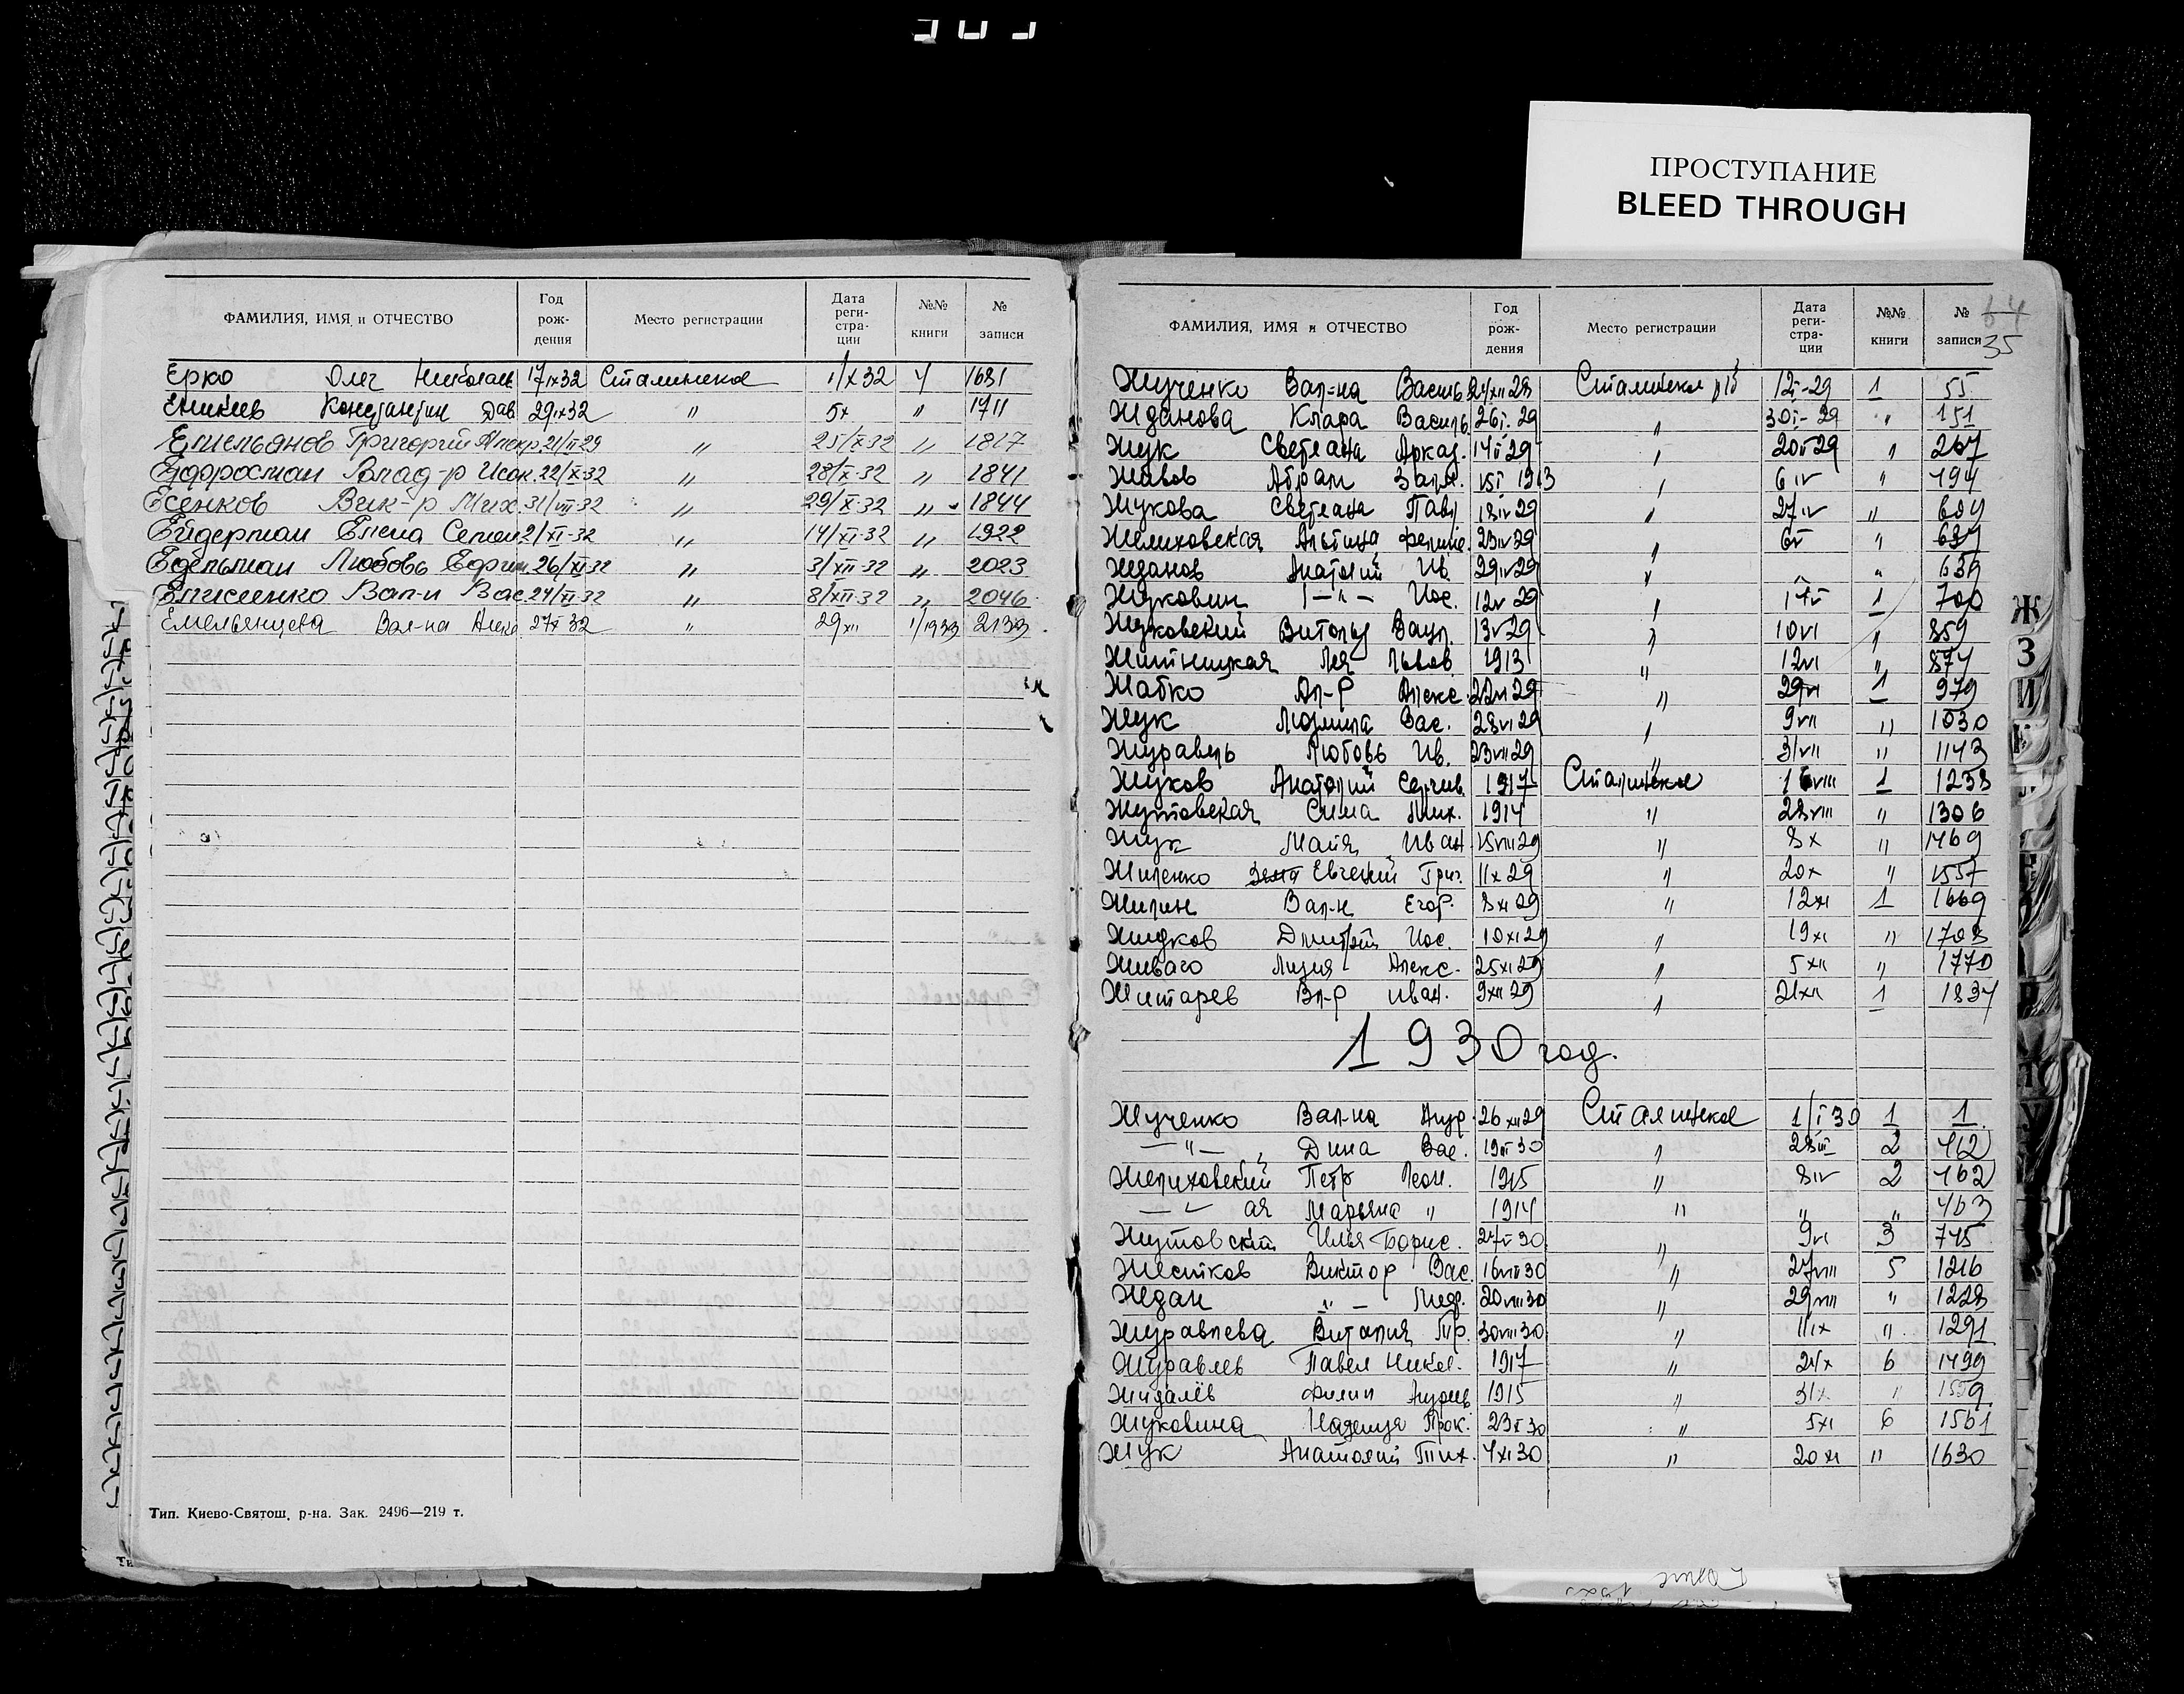 ПРОСТУПАНИЕ
BLEED THROUGH
ФАМИЛИЯ, ИМЯ и ОТЧЕСТВО Год рож- дения Место регистрации Дата реги- стра- ции №№ книги № записи
Ерко Олег Николаев 17 IX 32 Сталинское 1/X 32 4 1681
Еникиев Константин Дав 29 IX 32 " 5 X " 1711
Емельянов Григорий Алекр. 21/II 29 " 25/X-32 " 1817
Ефросман Влад-р Исак. 22/X-32 " 28/X-32 " 1841
Есенков Вик-р Мих. 31/VIII 32 " 29/X-32 " 1844
Ейдерман Елена Семен 2/XI-32 " 14/XI-32 " 1922
Едельман Любовь Ефрим. 26/XI 32 " 3/XII-32 " 2023
Елисиенко Вал-н Вас. 24/XI-32 " 8/XII-32 " 2046
Емельянцева Вал-на Алек 27 X 32 " 29 XII 1/1933 2133
Тип. Киево-Святош. р-на. Зак. 2496—219 т.
64
35
ФАМИЛИЯ, ИМЯ и ОТЧЕСТВО Год рож- дения Место регистрации Дата реги- стра- ции №№ книги № записи
Жученко Вал-на Василь 24 XII 28 Сталинское 12 I-29 1 55
Жданова Клара Василь. 26 I. 29 " 30 I-29 " 151
Жук Светлана Аркад. 14 II 29 " 20 II 29 " 267
Живов Абрам Залм. 15 I 1913 " 6 IV " 494
Жукова Светлана Павл 18 IV 29 " 27 IV " 609
Желиховская Альбина Фелик. 23 IV 29 " 6 V " 637
Жданов Анатолий Ив. 29 IV 29 " " " 639
Жуковин — " — Иос. 12 V 29 " 17 V 1 700
Жуковский Витольд Вацл. 13 V 29 " 10 VI " 859
Житницкая Лея Львов. 1913 " 12 VI " 874
Жабко Ал-р Алекс. 22 VI 29 " 29 VI 1 979
Жук Людмила Вас. 28 VI 29 " 9 VII " 1030
Журавль Любовь Ив. 23 VII 29 " 31 VII " 1143
Жуков Анатолий Сергеев. 1917 Сталинское 16 VIII 1 1238
Жутовская Сима Мих. 1914 " 28 VIII " 1306
Жук Майя Иван. 15 VIII 29 " 8 X " 1469
Жиленко Евгений Григ. 11 X 29 " 20 X " 1557
Жилин Вал-н Егор. 8 XI 29 " 12 XI 1 1669
Жидков Дмитрий Иос. 10 XI 29 " 19 XI " 1708
Живаго Лидия Алекс. 25 XI 29 " 5 XII " 1770
Житарев Вл-р Иван. 9 XII 29 " 21 XII 1 1834
1930 год.
Жученко Вал-на Андр. 26 XII 29 Сталинское 1/I 30 1 1
— " — Дина Вас. 19 III 30 " 28 III 2 412
Желиховский Петр Леон. 1915 " 8 IV 2 462
— " — ая Марьяна " 1914 " " " 463
Жутовский Илья Борис. 27 V 30 " 9 VI 3 745
Жестков Виктор Вас. 16 VIII 30 " 27 VIII 5 1216
Ждан " — Фед. 20 VIII 30 " 29 VIII " 1228
Журавлева Виталия Гр. 30 VIII 30 " 11 IX " 1291
Журавлев Павел Никол. 1917 " 21/X 6 1499
Жидалёв Филип Андреев 1915 " 31 X " 1559
Жуковина Надежда Прок. 23 X 30 " 5 XI 6 1561
Жук Анатолий Тих. 4 XI 30 " 20 XI " 1630
Ж
З
И
К
У